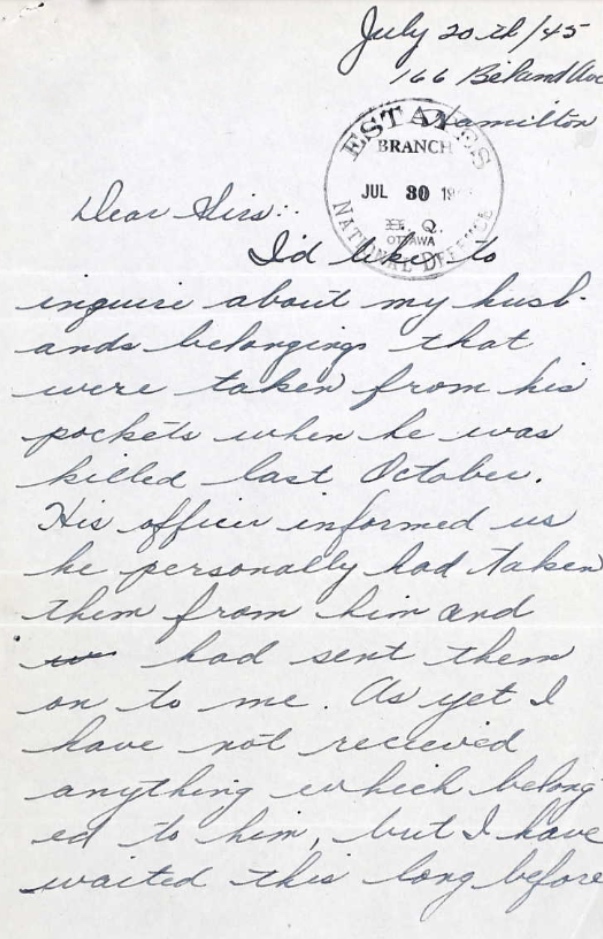 July 20th/45
166 Beland Ave
Hamilton
ESTATES
BRANCH
JUL 30 19
H. Q.
OTTAWA
NATIONAL DEFENCE
Dear Sirs:
I'd like to
inquire about my husb-
ands belongings that
were taken from his
pockets when he was
killed last October.
His officer informed us
he personally had taken
them from him and
had sent them
on to me. As yet I
have not recieved
anything which belong
ed to him, but I have
waited this long before